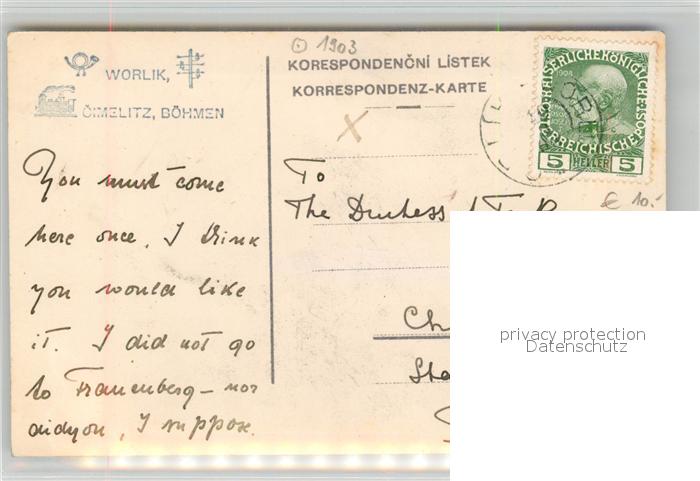 ⊙ 1903
WORLIK,
ČIMELITZ, BÖHMEN
KORESPONDENČNÍ LÍSTEK
KORRESPONDENZ-KARTE
KAISERLICHE KÖNIGLICHE
ÖSTERREICHISCHE POST
1908
5 HELLER 5
€ 10.-
X
You must come
here once. I think
you would like
it. I did not go
to Frauenberg – nor
did you, I suppose.
To
The Duchess
Ch
Sta
privacy protection
Datenschutz